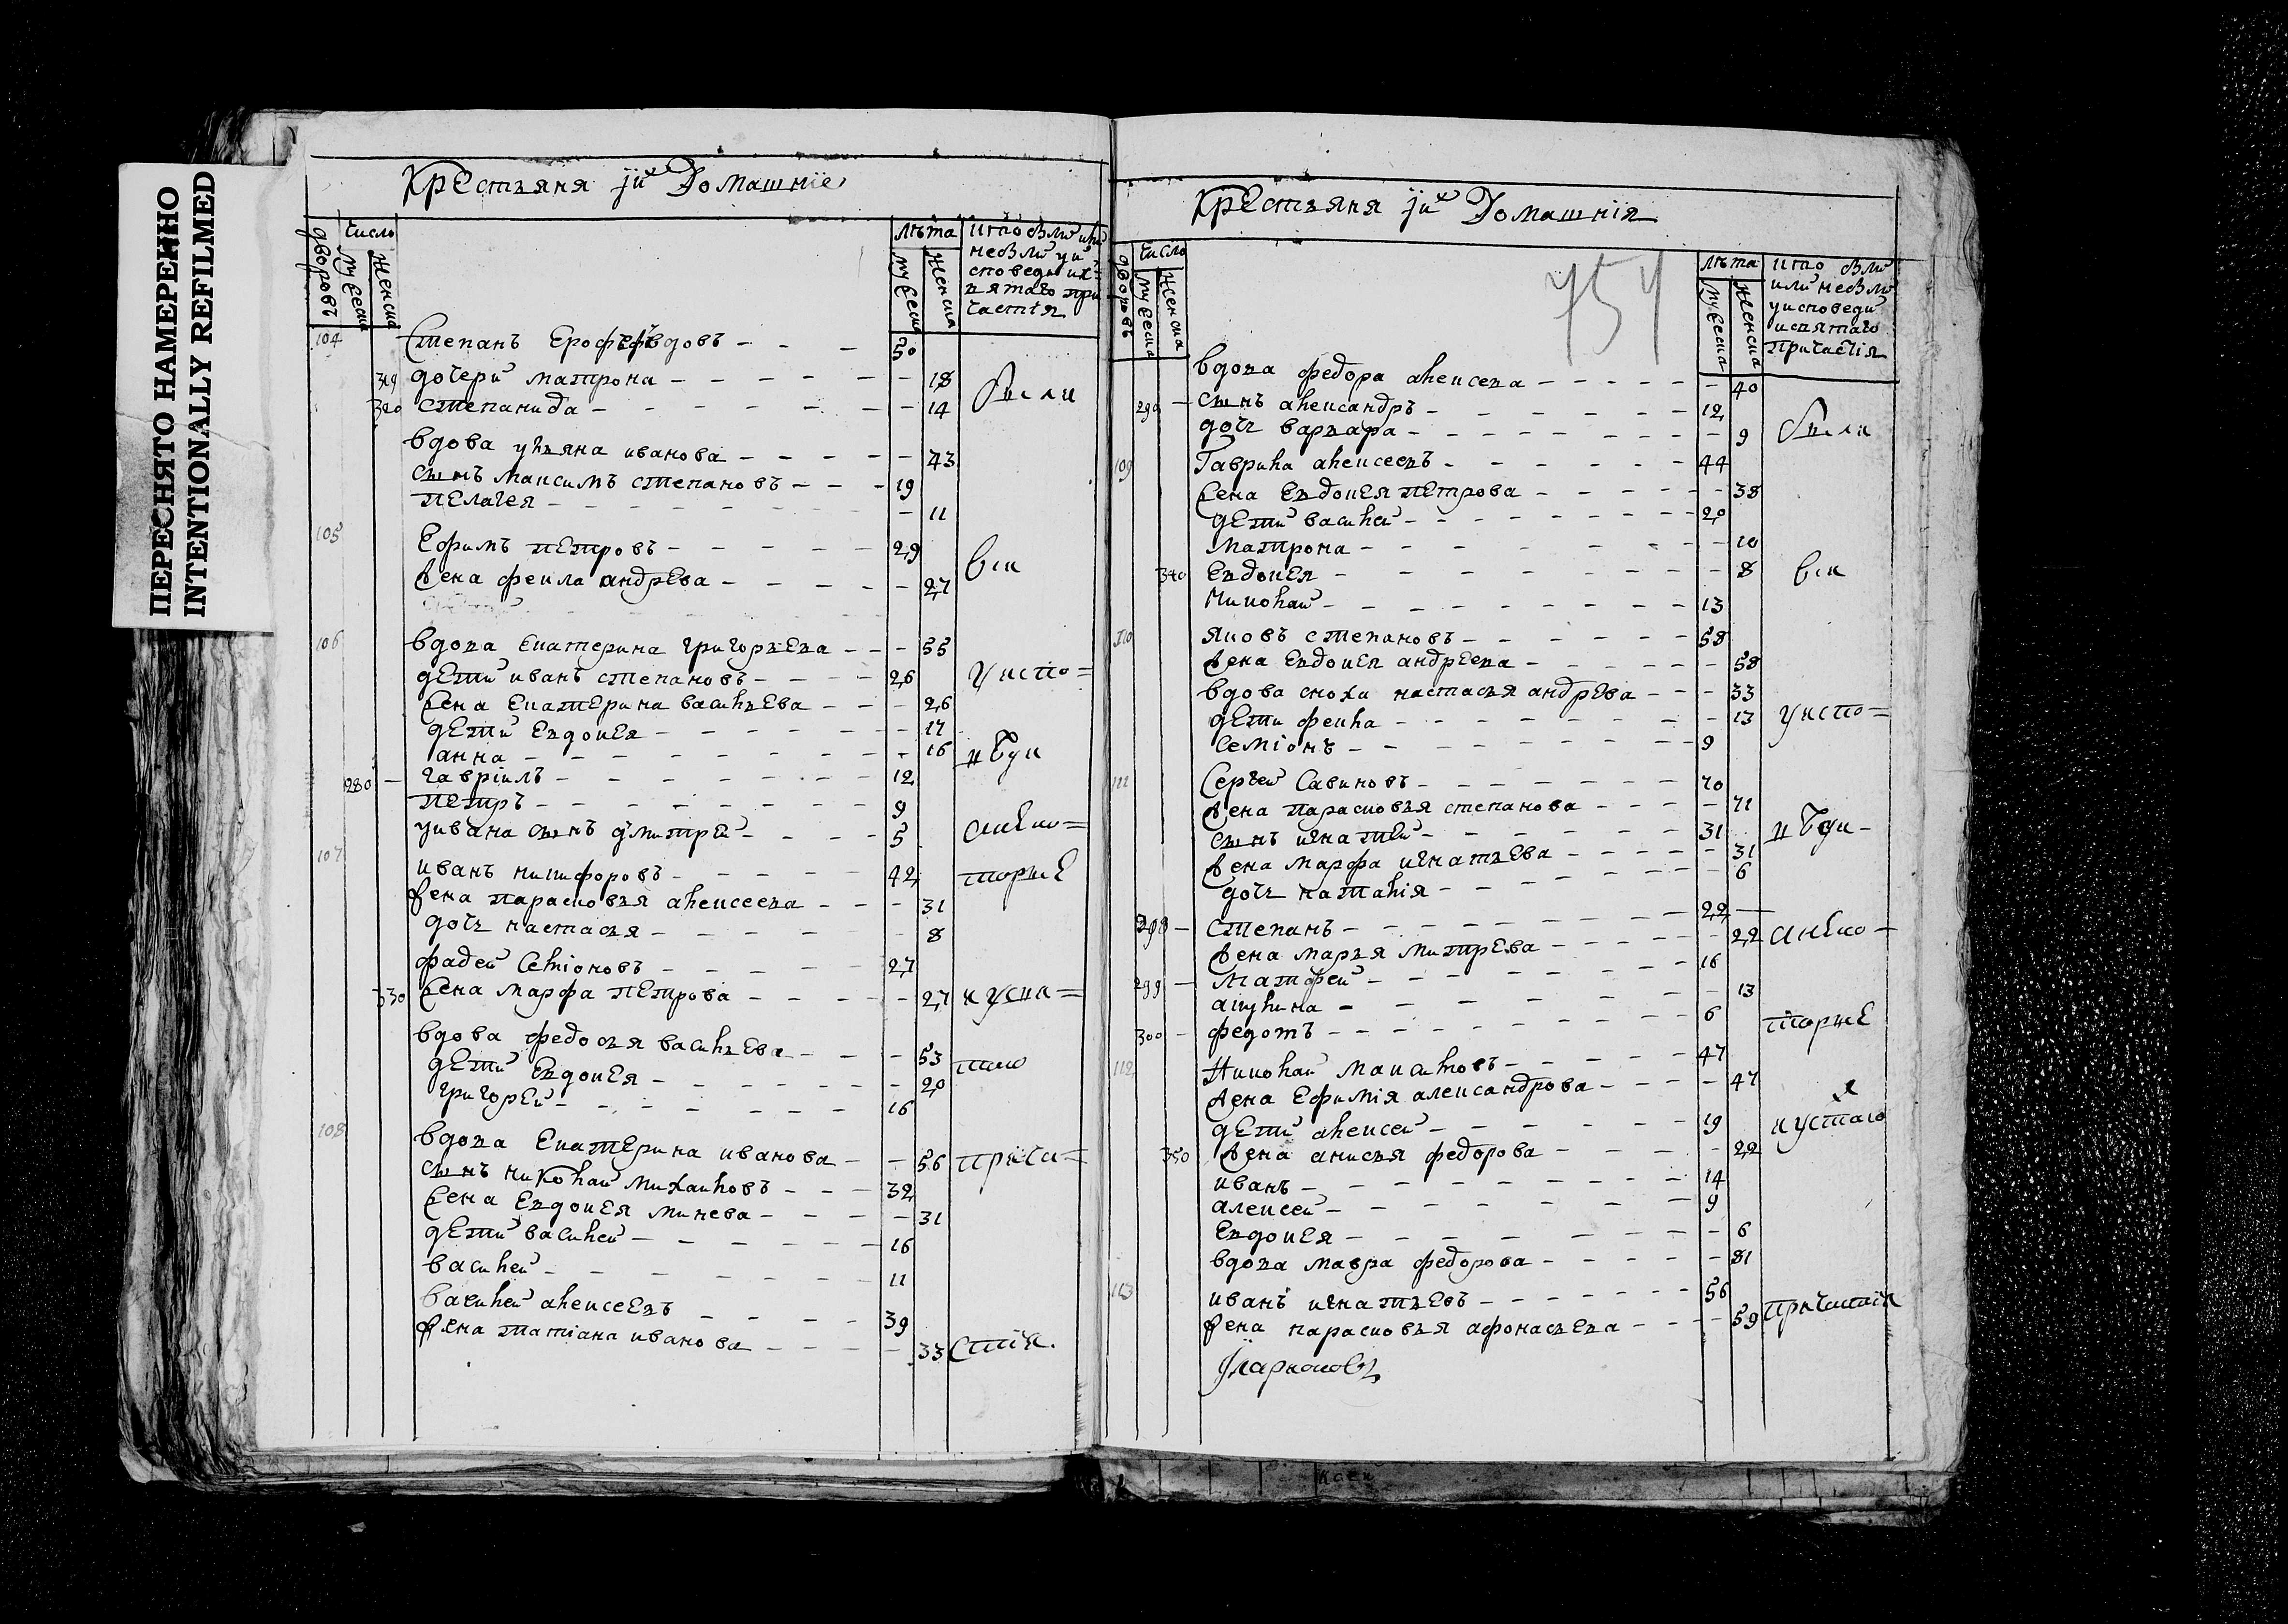 ПЕРЕСНЯТО НАМЕРЕННО
INTENTIONALLY REFILMED
Крестьяня их Домашние
дворовъ число мужеска женска лѣта мужеска женска
кто были или
не были у и
споведи и с
вятаго при
частия
104 Степанъ Ерофеевъ вдовъ 50
319 дочери матрона 18 были
320 степанида 14
вдова ульяна иванова 43
сынъ максимъ степановъ 19
пелагея 11
105 Ефимъ петровъ 29
жена фекла андрева 27 вси
106 вдова екатерина григорьева 55
дети иванъ степановъ 26 у испо=
жена екатерина васильева 26
дети евдокея 17
анна 16
280 гавріилъ 12
петръ 9
у ивана сынъ дмитреи 5
107 иванъ никифоровъ 42 торые
жена парасковья алексеева 31
дочь настасья 8
фадеи семіоновъ 27
330 жена марфа петрова 27
вдова федосья васильева 53
дети евдокея 20
григореи 16
108 вдова екатерина иванова 56 прича=
сынъ николаи михаиловъ 32
жена евдокея минева 31
дети василеи 16
василеи 11
василеи алексеевъ 39
жена татіана иванова 33 стія.
Крестьяня их Домашнія
754
дворовъ число мужеска женска лѣта мужеска женска
кто были
или не были
у исповеди
и святаго
причастія
вдова федора алексева 40
290 сынъ александръ 12 были
дочь варвара 9
109 Гаврила алексеевъ 44
жена евдокея петрова 38
дети василеи 20
матрона 10
340 евдокея 8 вси
Николаи 13
110 яковъ степановъ 58
жена евдокея андреева 58
вдова сноха настасья андрева 33
дети фекла 13 у испо=
семіонъ 9
111 Сергеи Савиновъ 70
жена парасковья степанова 71
сынъ игнатеи 31
жена марфа игнатьева 31
дочь наталія 6
298 степанъ 22
жена марья митрева 22
299 матфеи 16
акулина 13
300 федотъ 6 торые
112 Николаи Максимовъ 47
жена Ефимія александрова 47
дети алексеи 19
350 жена анисья федорова 22
иванъ 14
алексеи 9
евдокея 6
вдова мавра федорова 81
113 иванъ игнатьевъ 56 причастія
жена парасковья афонасьева 59